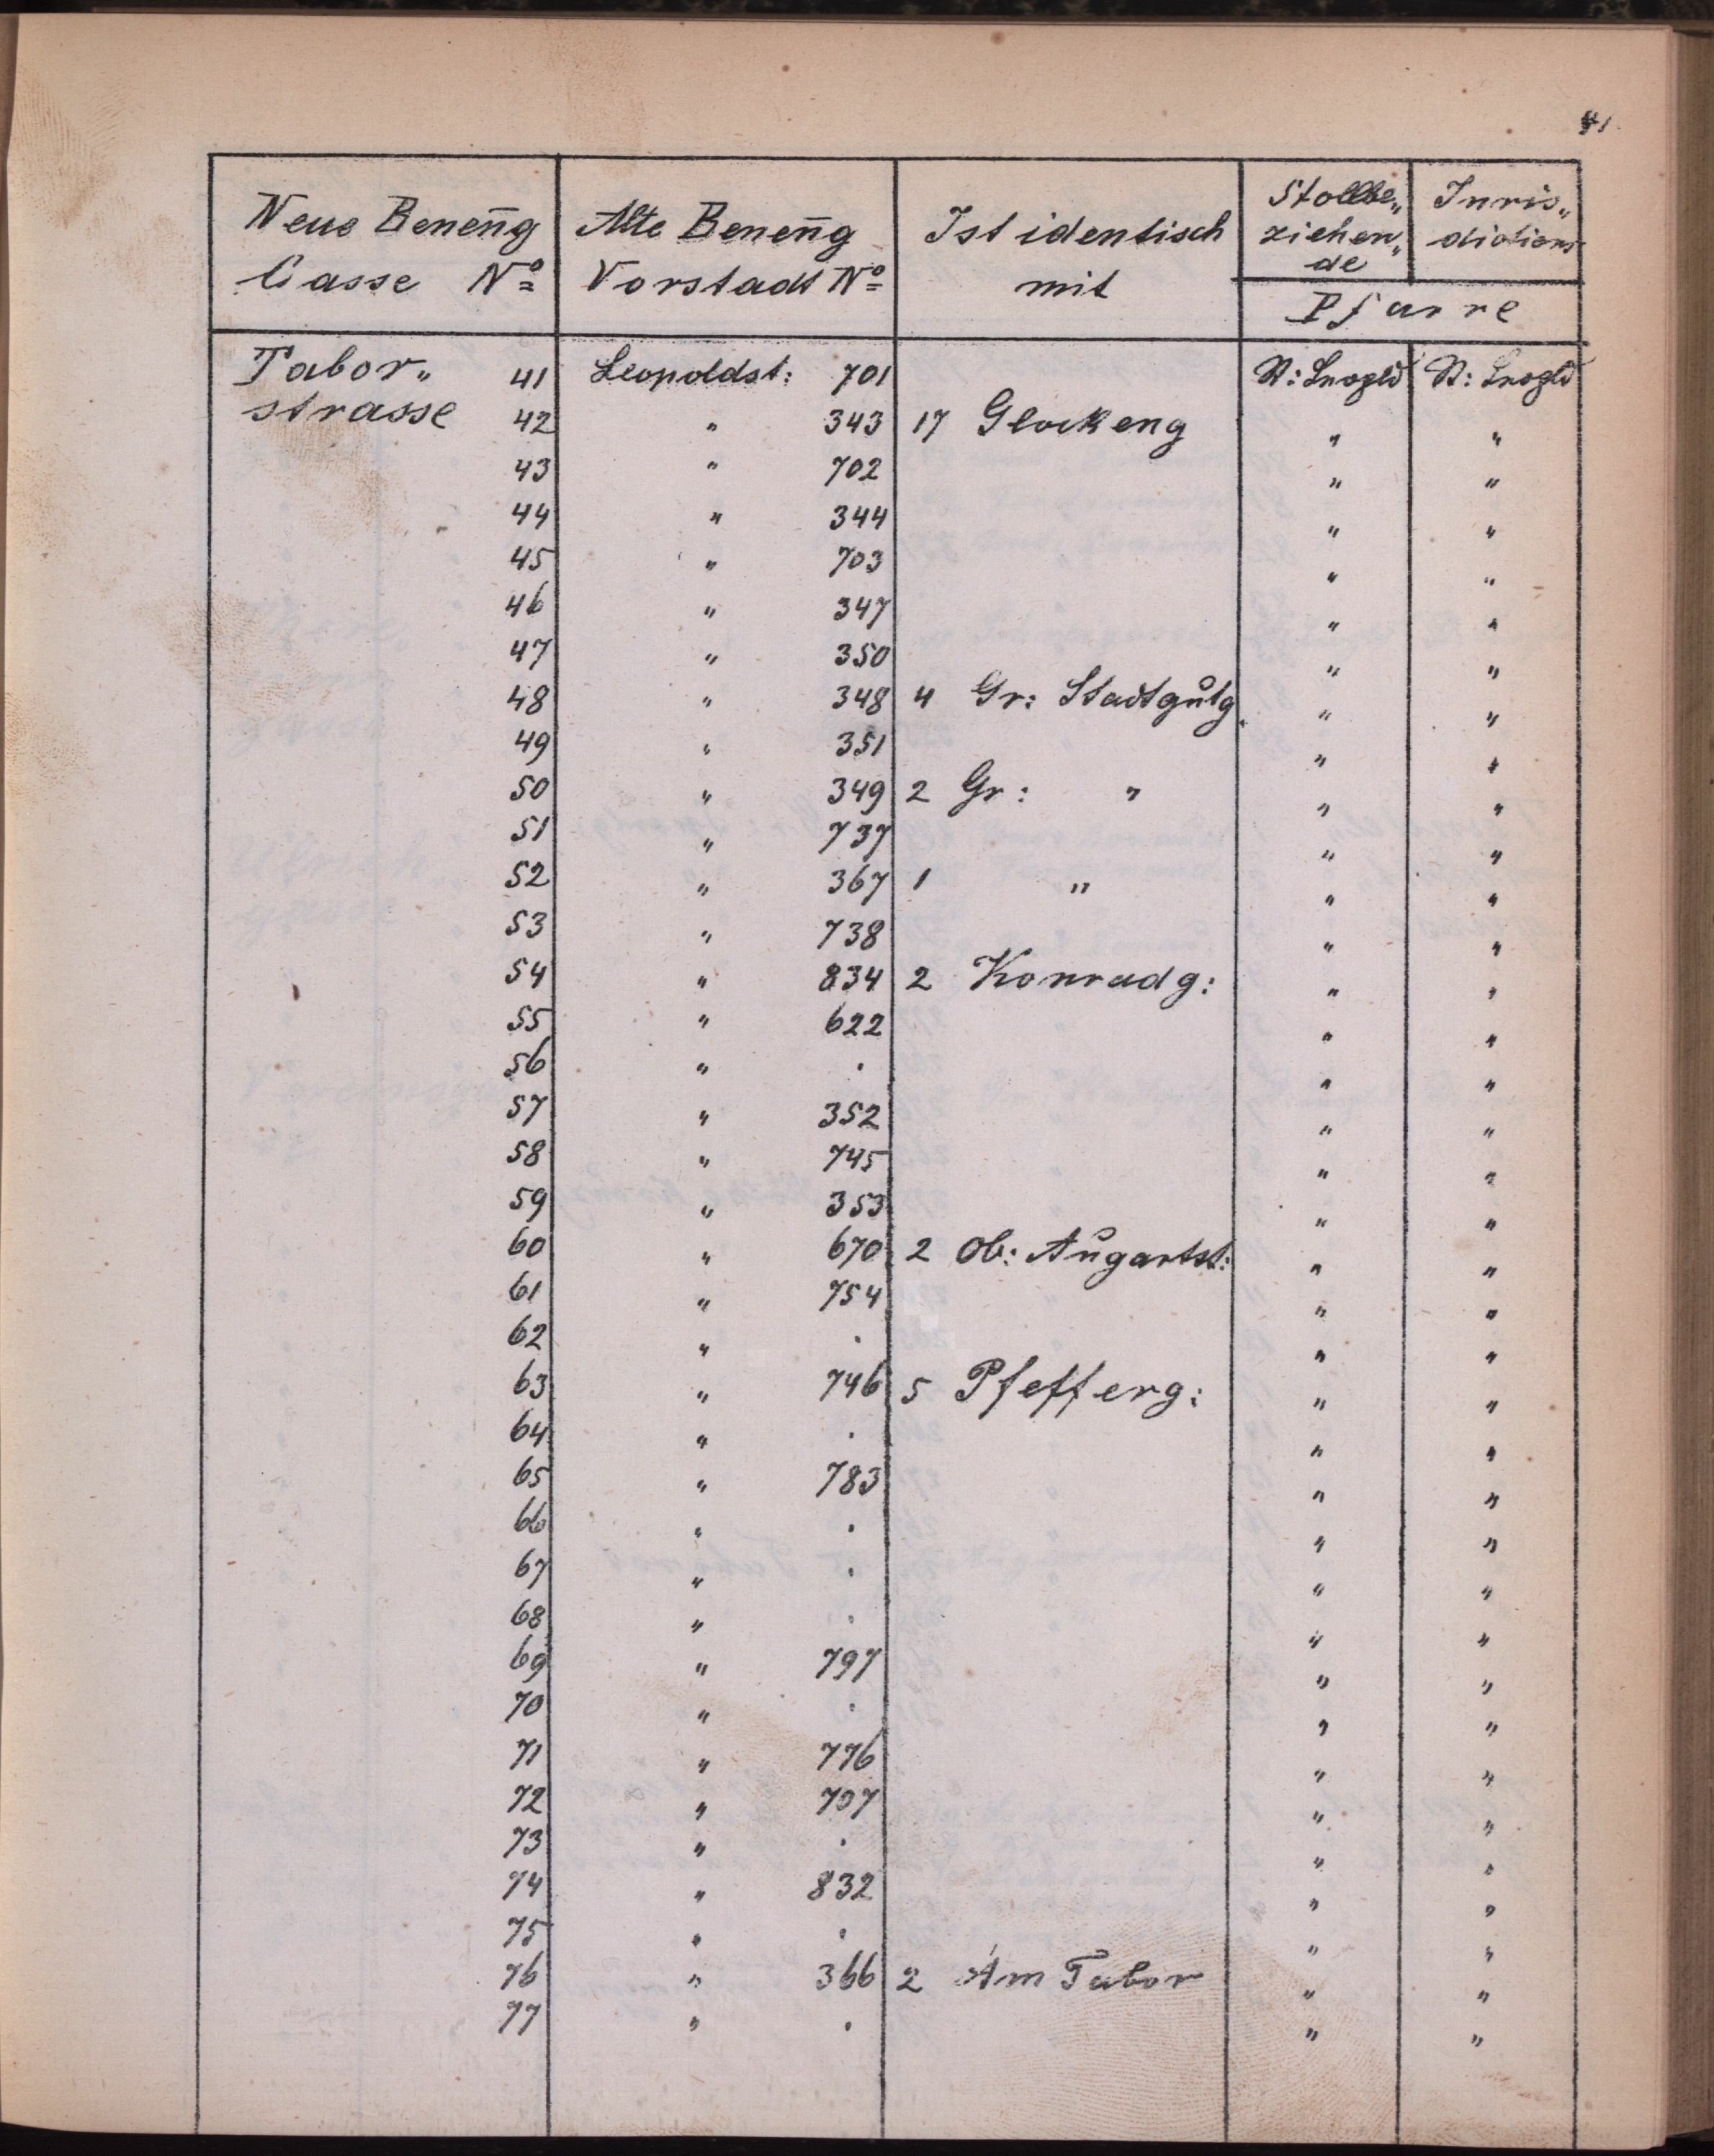 41
Neue Beneñg Alte Beneñg Ist identisch Stollbe„ Juris„
ziehen„ dictions
de
Gasse No Vorstadt No mit Pfarre
Tabor„ 41 Leopoldst: 701 St: Leopld St: Leopld
strasse 42 " 343 17 Glockeng " "
43 " 702 " "
44 " 344 " "
45 " 703 " "
46 " 347 " "
47 " 350 " "
48 " 348 4 Gr: Stadtgutg " "
49 " 351 " "
50 " 349 2 Gr: " " "
51 " 737 " "
52 " 367 1 " " "
53 " 738 " "
54 " 834 2 Konradg: " "
55 " 622 " "
56 " . " "
57 " 352 " "
58 " 745 " "
59 " 353 " "
60 " 670 2 Ob: Augartst: " "
61 " 754 " "
62 " . " "
63 " 746 5 Pfefferg: " "
64 " . " "
65 " 783 " "
66 " . " "
67 " . " "
68 " . " "
69 " 797 " "
70 " . " "
71 " 776 " "
72 " 707 " "
73 " . " "
74 " 832 " "
75 " . " "
76 " 366 2 Am Tabor " "
77 " . " "